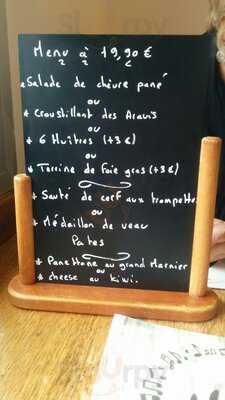 Menu à 19,90 €
* Salade de chèvre pané
ou
* Croustillant des Aravis
ou
* 6 Huîtres (+3 €)
ou
* Terrine de foie gras (+3 €)
* Sauté de cerf aux trompettes
ou
* Médaillon de veau
Pates
* Panettone au grand Marnier
ou
* cheese au kiwi.